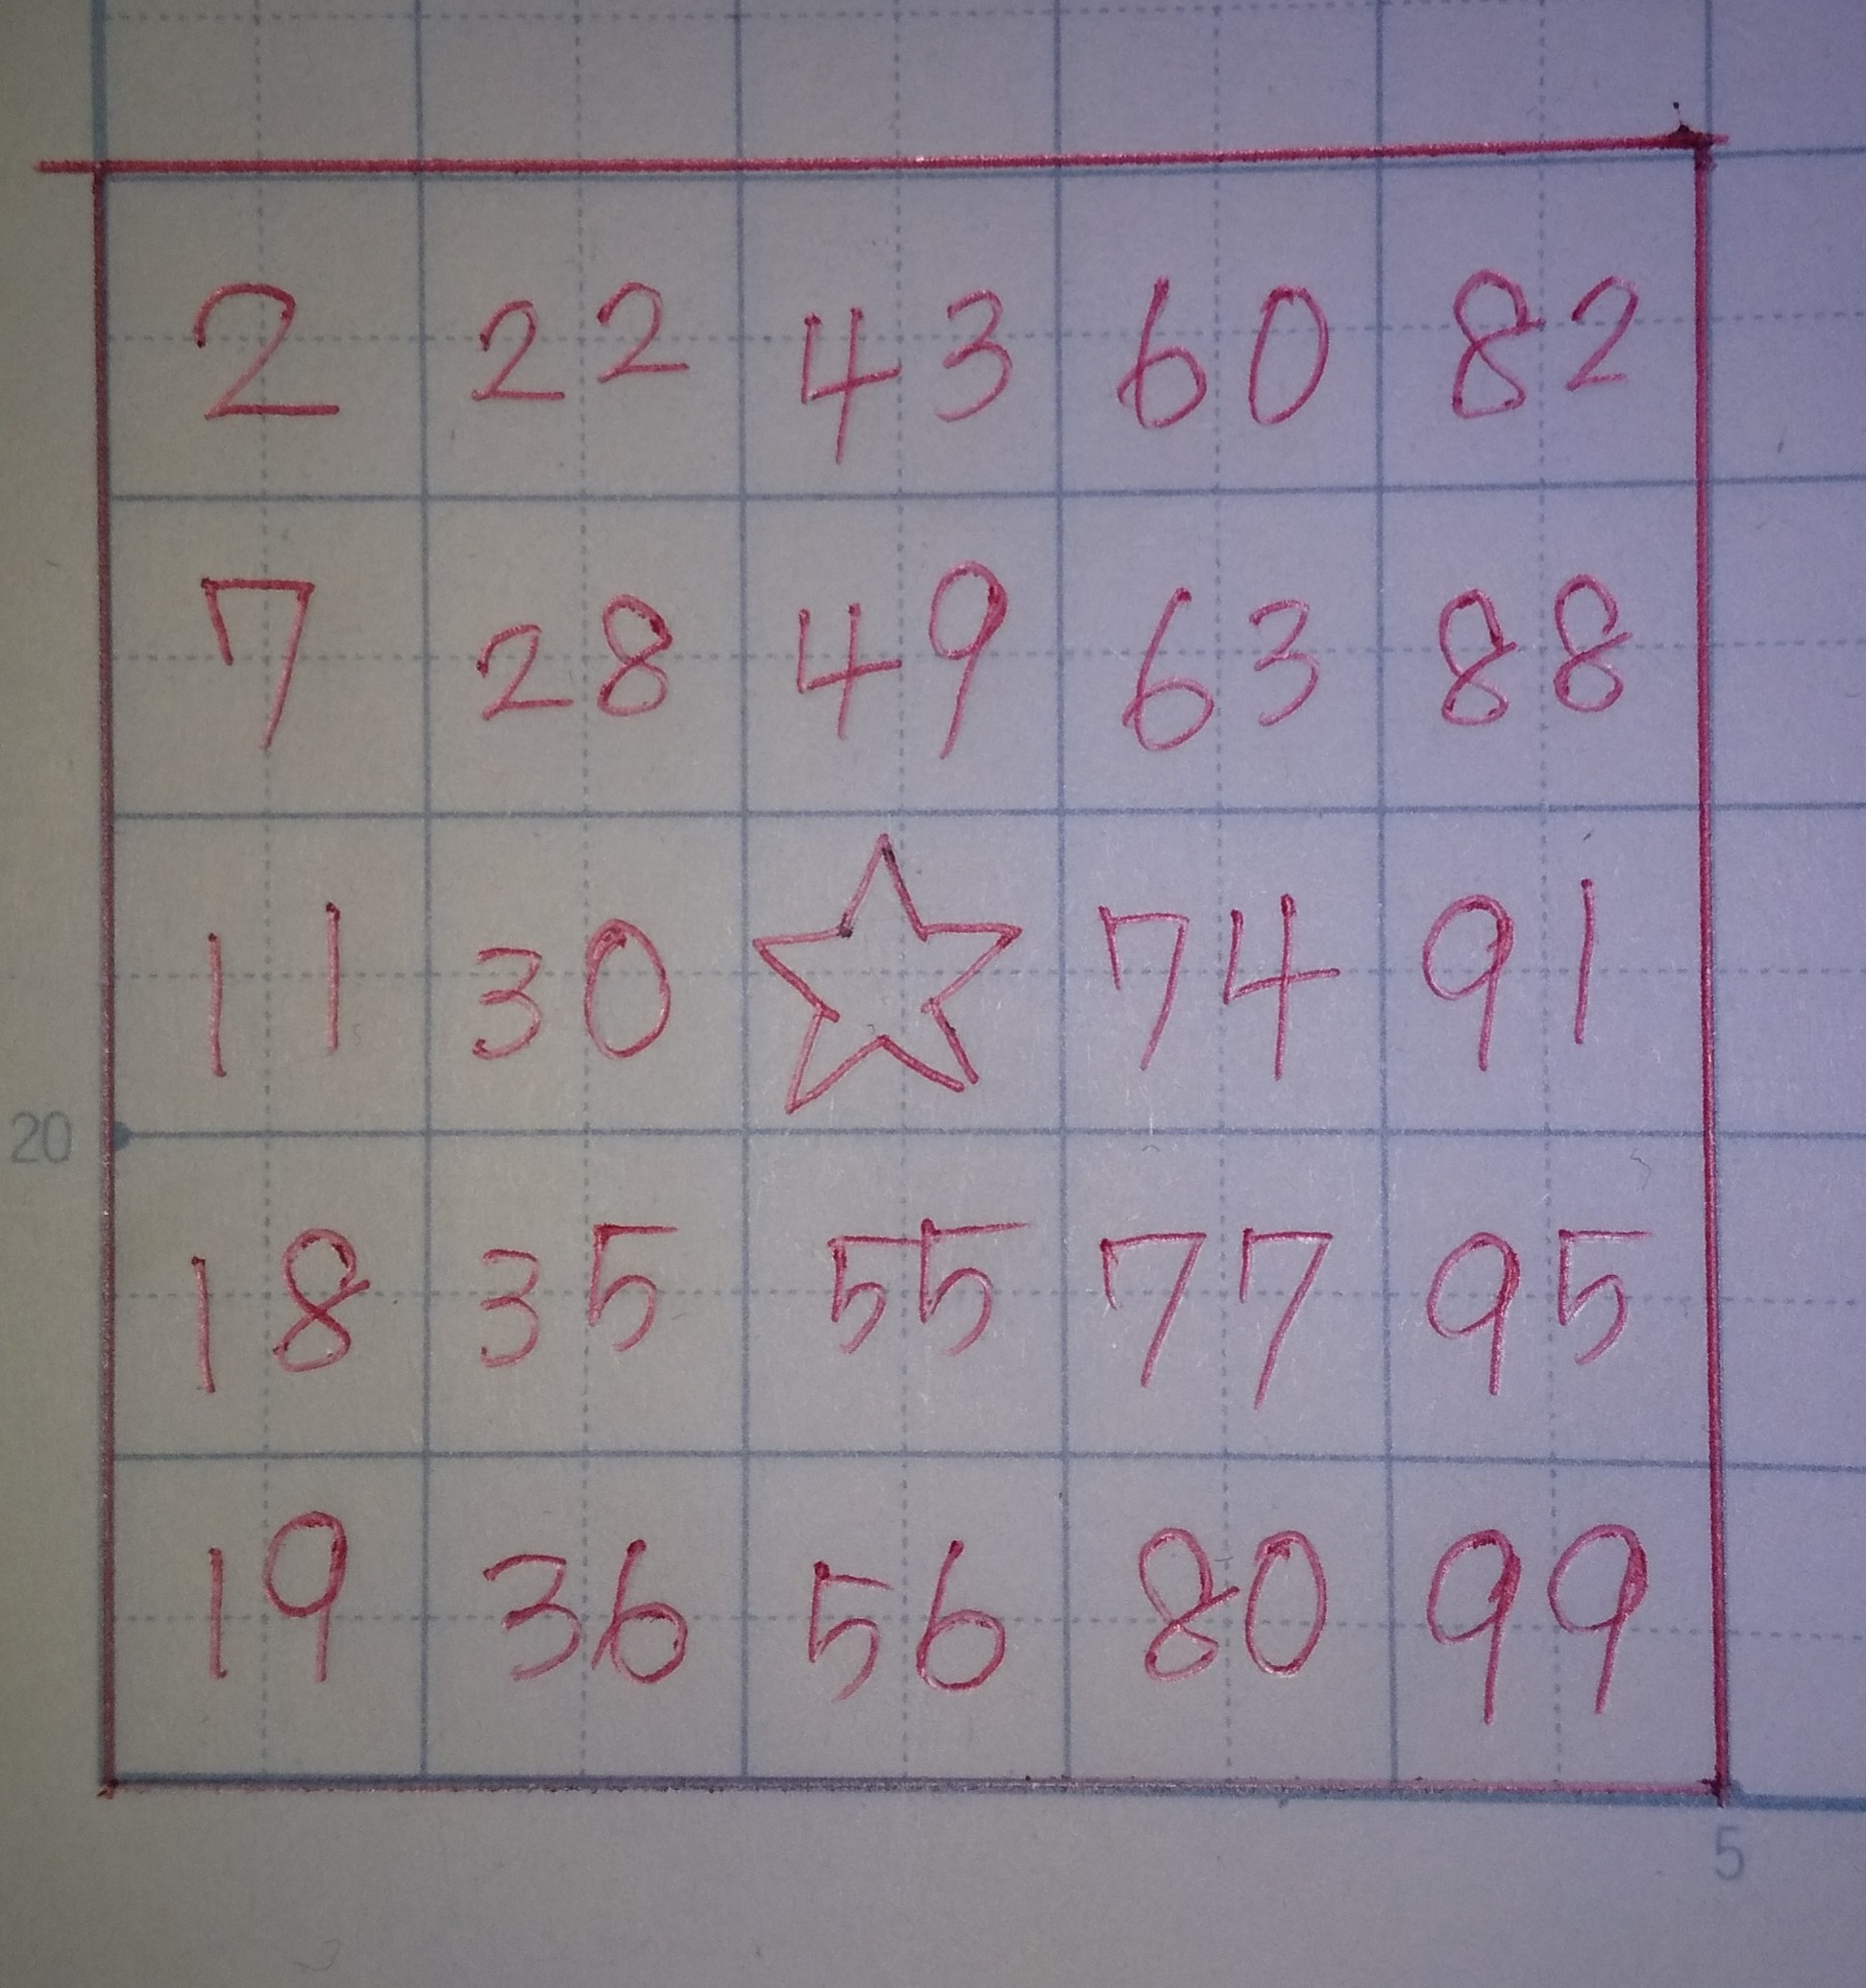 2 22 43 60 82
7 28 49 63 88
11 30 ☆ 74 91
20
18 35 55 77 95
19 36 56 80 99
5